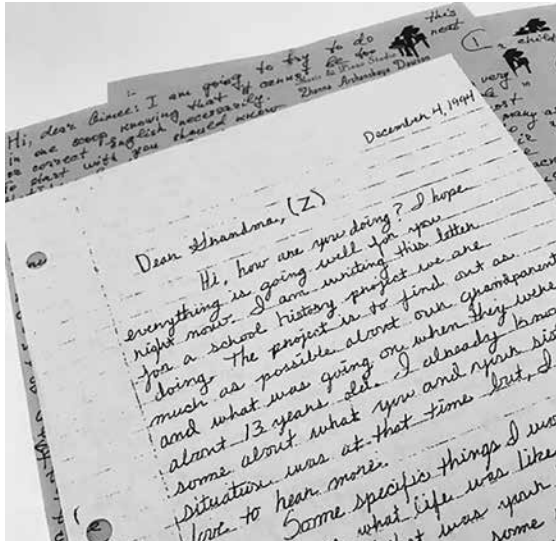 Hi, dear Aimee: I am going to try to do this
in one scoop, knowing that it cannot be too neat
or correct English necessarily.
to start with you should know
Music & Piano Studio
Zhanna Arshanskaya Dawson
child
very
many
December 4, 1994
Dear Grandma, (Z)
Hi, how are you doing? I hope
everything is going well for you
right now. I am writing this letter
for a school history project we are
doing. The project is to find out as
much as possible about our grandparent
and what was going on when they were
about 13 years old. I already know
some about what you and your sis
situation was at that time but, I
love to hear more.
Some specific things I wo
what life was like
was your
some